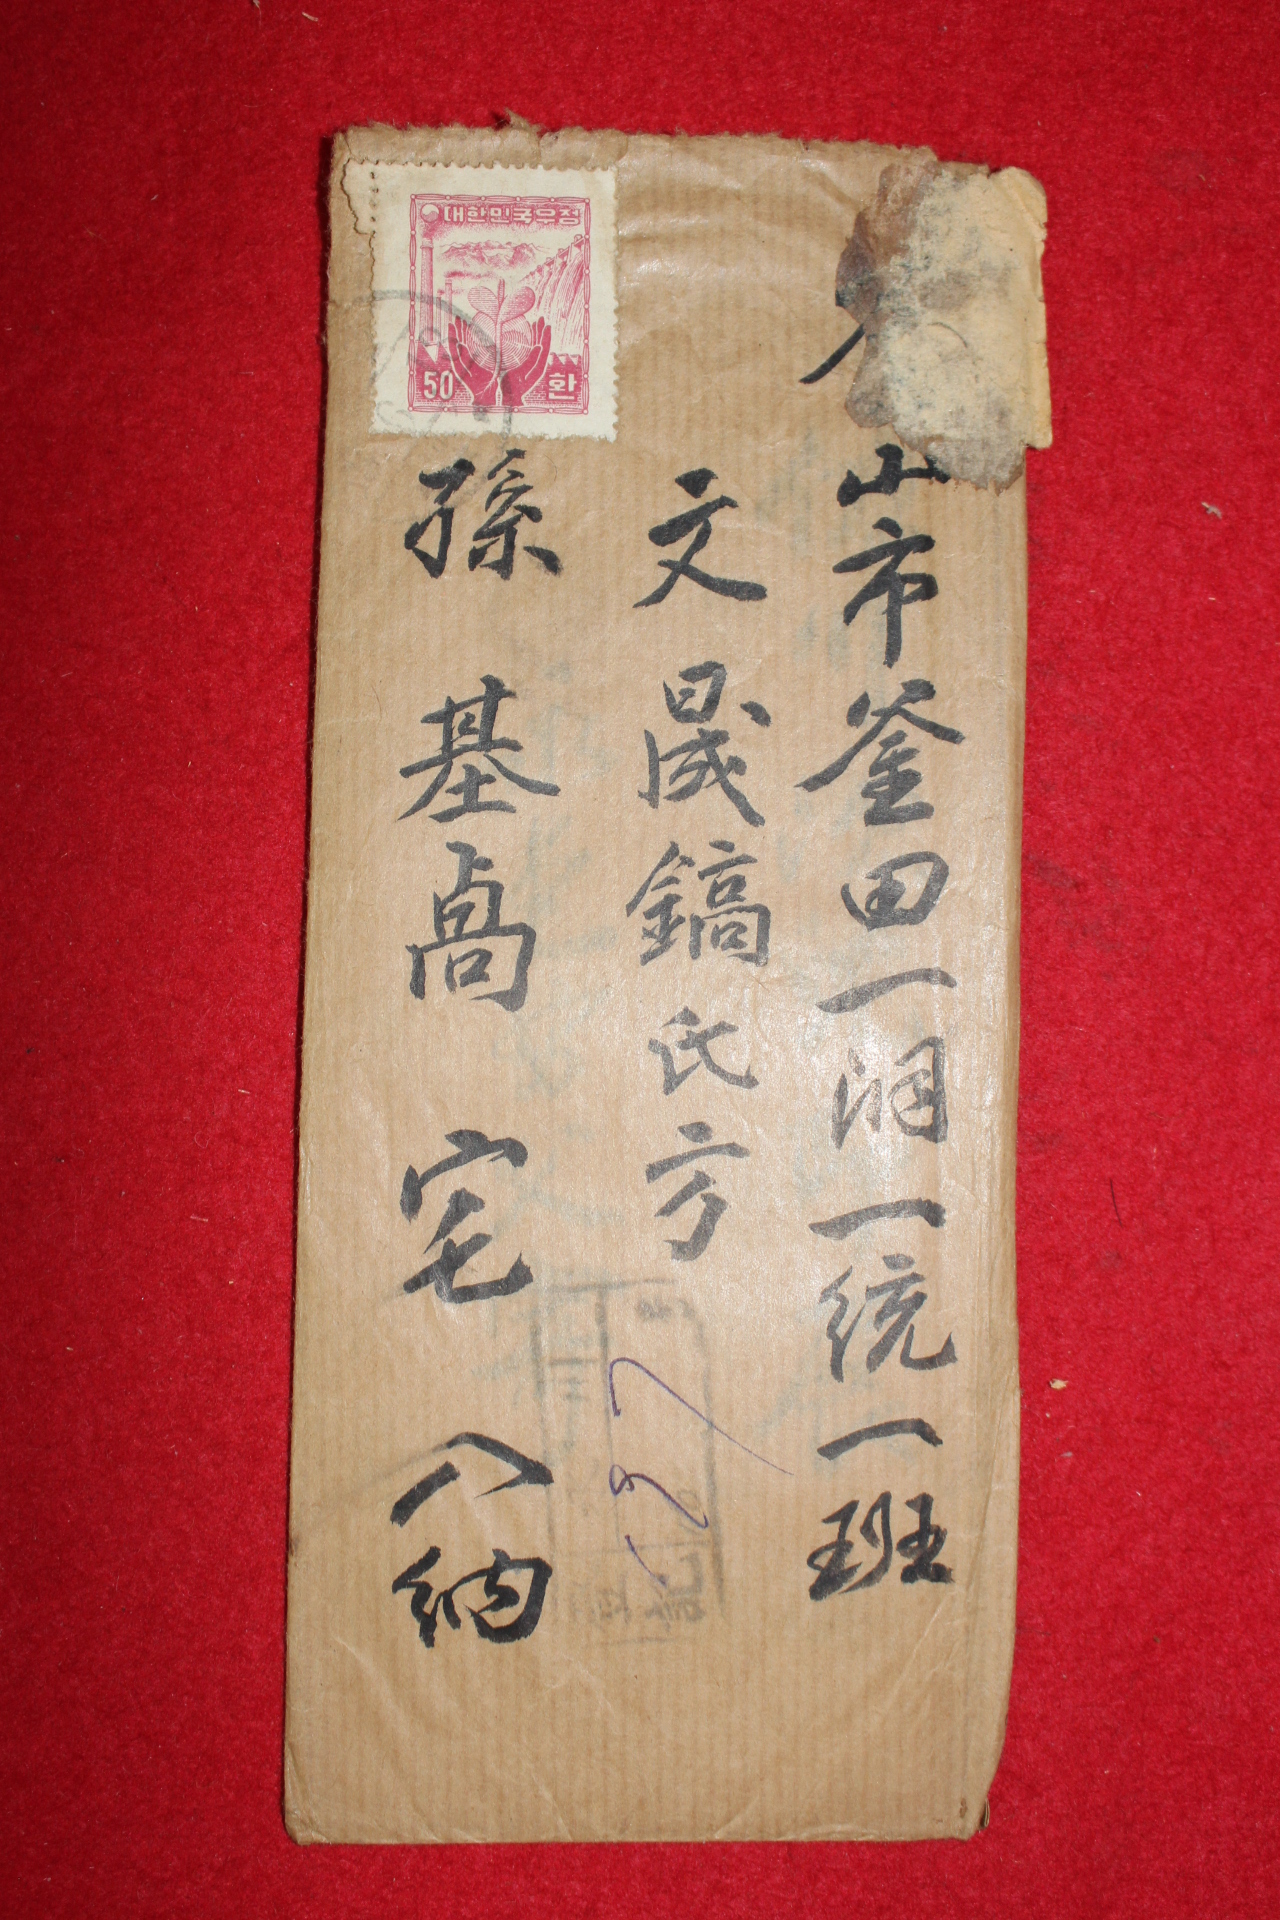 山市釜田一洞一統一班
文晟鎬氏方
孫基卨宅入納
대한민국우정
50 환